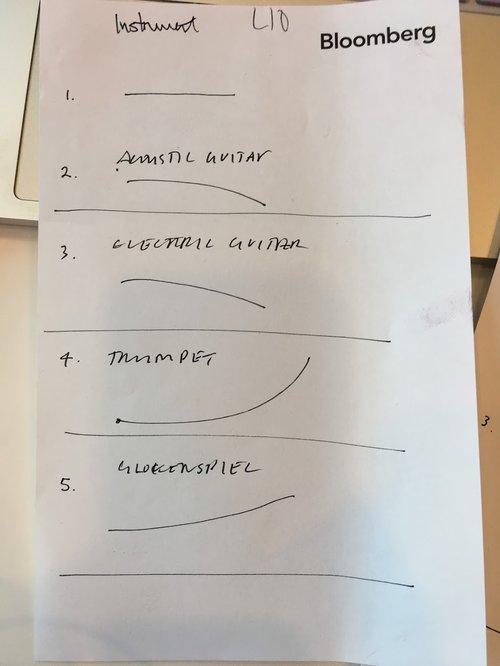 Instrument L10
Bloomberg
1.
2. ACOUSTIC GUITAR
3. ELECTRIC GUITAR
4. TRUMPET
5. GLOCKENSPIEL
3.